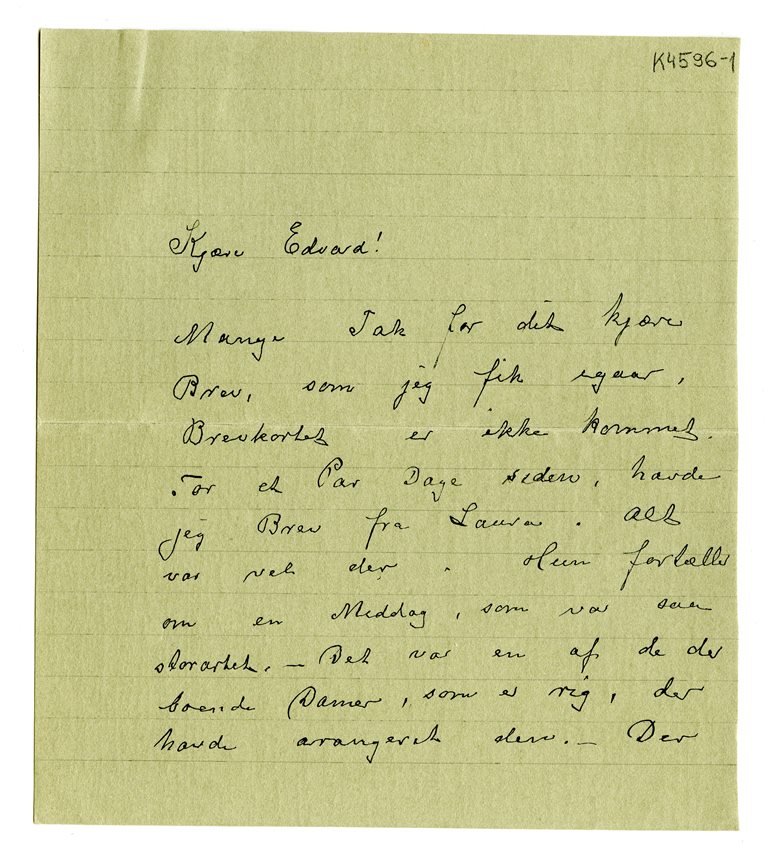 K4596-1
Kjære Edvard!
Mange Tak for dit kjære
Brev, som jeg fik igaar,
Brevkortet er ikke kommet.
For et Par Dage siden, havde
jeg Brev fra Laura. Alt
var vel der. Hun fortæller
om en Middag, som var saa
storartet. – Det var en af de der
boende Damer, som er rig, der
havde arrangeret den. – Der